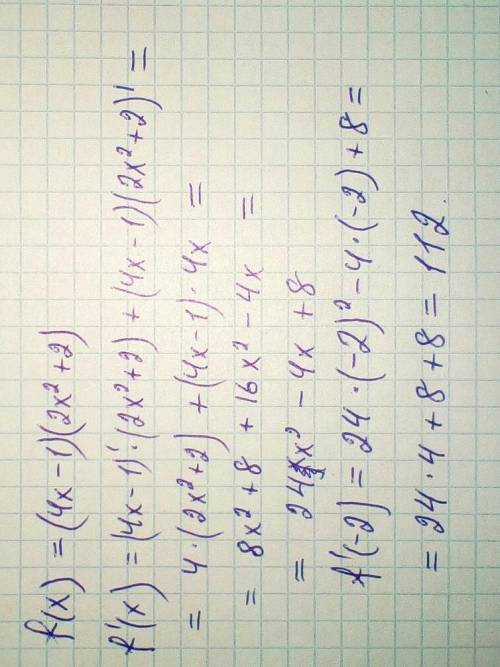 f(x) = (4x-1)(2x²+2)
f'(x) = (4x-1)'·(2x²+2) + (4x-1)(2x²+2)' =
= 4·(2x²+2) + (4x-1)·4x =
= 8x²+8 + 16x² - 4x =
= 24x² - 4x + 8
f'(-2) = 24·(-2)² - 4·(-2) + 8 =
= 24·4 + 8 + 8 = 112.